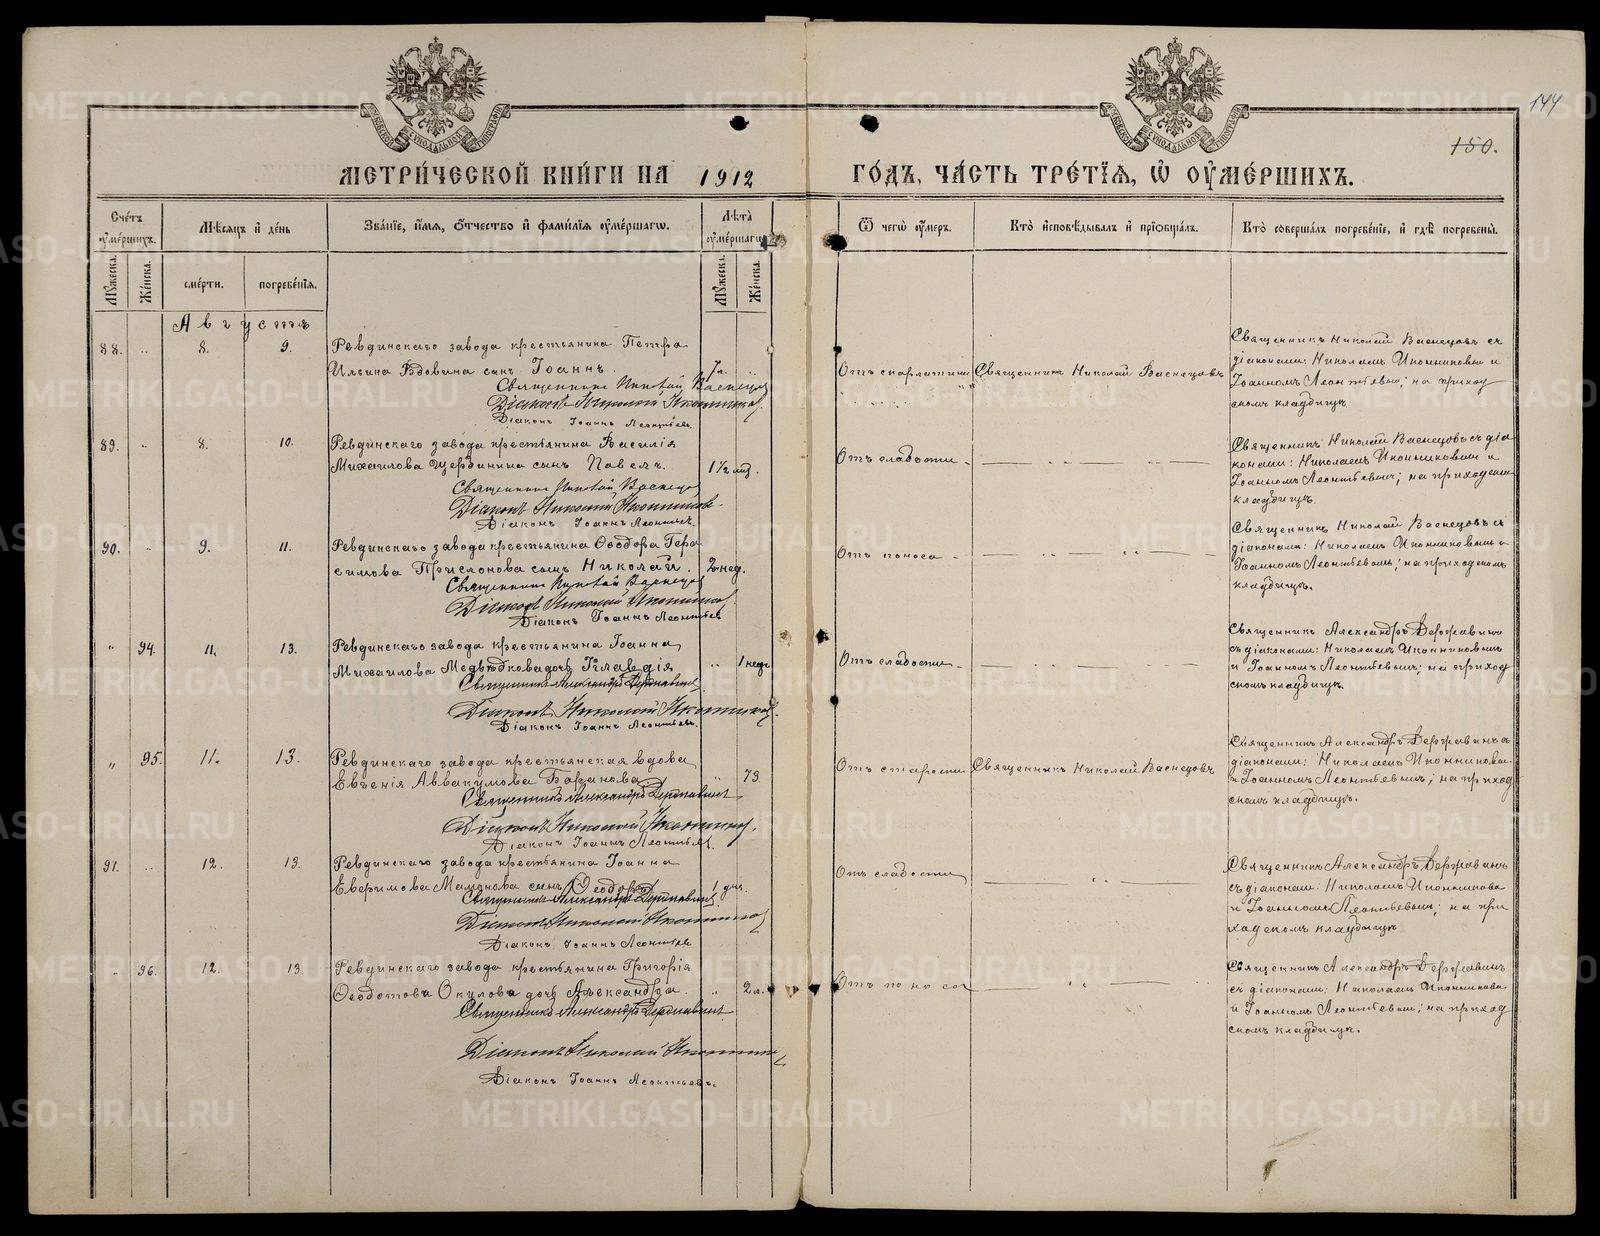 144
150.
МЕТРИ́ЧЕСКОЙ КНИ́ГИ НА 1912 ГО́ДЪ, ЧА́СТЬ ТРЕ́ТІѦ, Ѽ ОУ҆МЕ́РШИХЪ.
Сче́тъ оу҆ме́ршихъ.
Мѣ́сяцъ и де́нь
Зва́ніе, и҆́мя, ѻ҆́тчество и҆ фами́лія оу҆ме́ршагѡ.
Лѣ́та оу҆ме́ршагѡ.
Ѿ чегѡ̀ оу҆́меръ.
Кто̀ и҆сповѣ́дывалъ и҆ прїѡбща́лъ.
Кто̀ соверша́лъ погребе́ніе, и҆ гдѣ̀ погребены̀.
Му́жеска.
Же́нска.
сме́рти.
погребе́нія.
Му́жеска.
Же́нска.
Августъ
88. „ 8. 9. Ревдинскаго завода крестьянина Петра
Ильина Вдовина сынъ Іоаннъ. 7 л. „
Священникъ Николай Васнецовъ
Діаконъ Николай Иконниковъ
Діаконъ Іоаннъ Леонтьевъ.
Отъ скарлатины
Священникъ Николай Васнецовъ
Священникъ Николай Васнецовъ съ
діаконами: Николаемъ Иконниковым и
Іоанномъ Леонтьевым; на приход
скомъ кладбищѣ
89. „ 8. 10. Ревдинскаго завода крестьянина Василія
Михаилова Щербинина сынъ Павелъ. 1½ мѣс.
Священникъ Николай Васнецовъ
Діаконъ Николай Иконниковъ.
Діаконъ Іоаннъ Леонтьевъ.
Отъ слабости
Священникъ Николай Васнецовъ съ діа
конами: Николаемъ Иконниковым и
Іоанномъ Леонтьевым; на приходском
кладбищѣ.
90. „ 9. 11. Ревдинскаго завода крестьянина Ѳеодора Гера
симова Прислонова сынъ Николай. 2 нед.
Священникъ Николай Васнецовъ
Діаконъ Николай Иконниковъ.
Діаконъ Іоаннъ Леонтьевъ
Отъ поноса
Священникъ Николай Васнецовъ съ
діаконами: Николаемъ Иконниковым и
Іоанномъ Леонтьевымъ; на приходскомъ
кладбищѣ.
„ 94. 11. 13. Ревдинскаго завода крестьянина Іоанна
Михаилова Медвѣдкова дочь Клавдія „ 1 недѣ
Священникъ Александръ Державинъ
Діаконъ Николай Иконниковъ.
Діаконъ Іоаннъ Леонтьевъ.
Отъ слабости
Священникъ Александръ Державинъ
съ діаконами: Николаемъ Иконниковымъ
и Іоанномъ Леонтьевымъ; на приход
скомъ кладбищѣ.
„ 95. 11. 13. Ревдинскаго завода крестьянская вдова
Евгенія Аввакумова Баранова. „ 73.
Священникъ Александръ Державинъ
Діаконъ Николай Иконниковъ.
Діаконъ Іоаннъ Леонтьев.
Отъ старости
Священникъ Николай Васнецовъ
Священникъ Александръ Державинъ съ
діаконами: Николаемъ Иконниковым
и Іоанномъ Леонтьевымъ; на приход
скомъ кладбищѣ.
91. „ 12. 13. Ревдинскаго завода крестьянина Іоанна
Ефримова Мамонова сынъ Ѳеодоръ 1 дня.
Священникъ Александръ Державинъ
Діаконъ Николай Иконниковъ
Діаконъ Іоаннъ Леонтьев
Отъ слабости
Священникъ Александръ Державинъ
съ діаконами: Николаемъ Иконникова
и Іоанномъ Леонтьевым; на при
ходскомъ кладбищѣ
„ 96. 12. 13. Ревдинскаго завода крестьянина Григорія
Ѳеодотова Окулова дочь Александра. „ 2 л.
Священникъ Александръ Державинъ
Діаконъ Николай Иконниковъ
Діаконъ Іоаннъ Леонтьевъ.
Отъ поноса
Священникъ Александръ Державинъ
съ діаконами: Николаемъ Иконникова
и Іоанномъ Леонтьевым; на приход
скомъ кладбищѣ.
METRIKI.GASO-URAL.RU